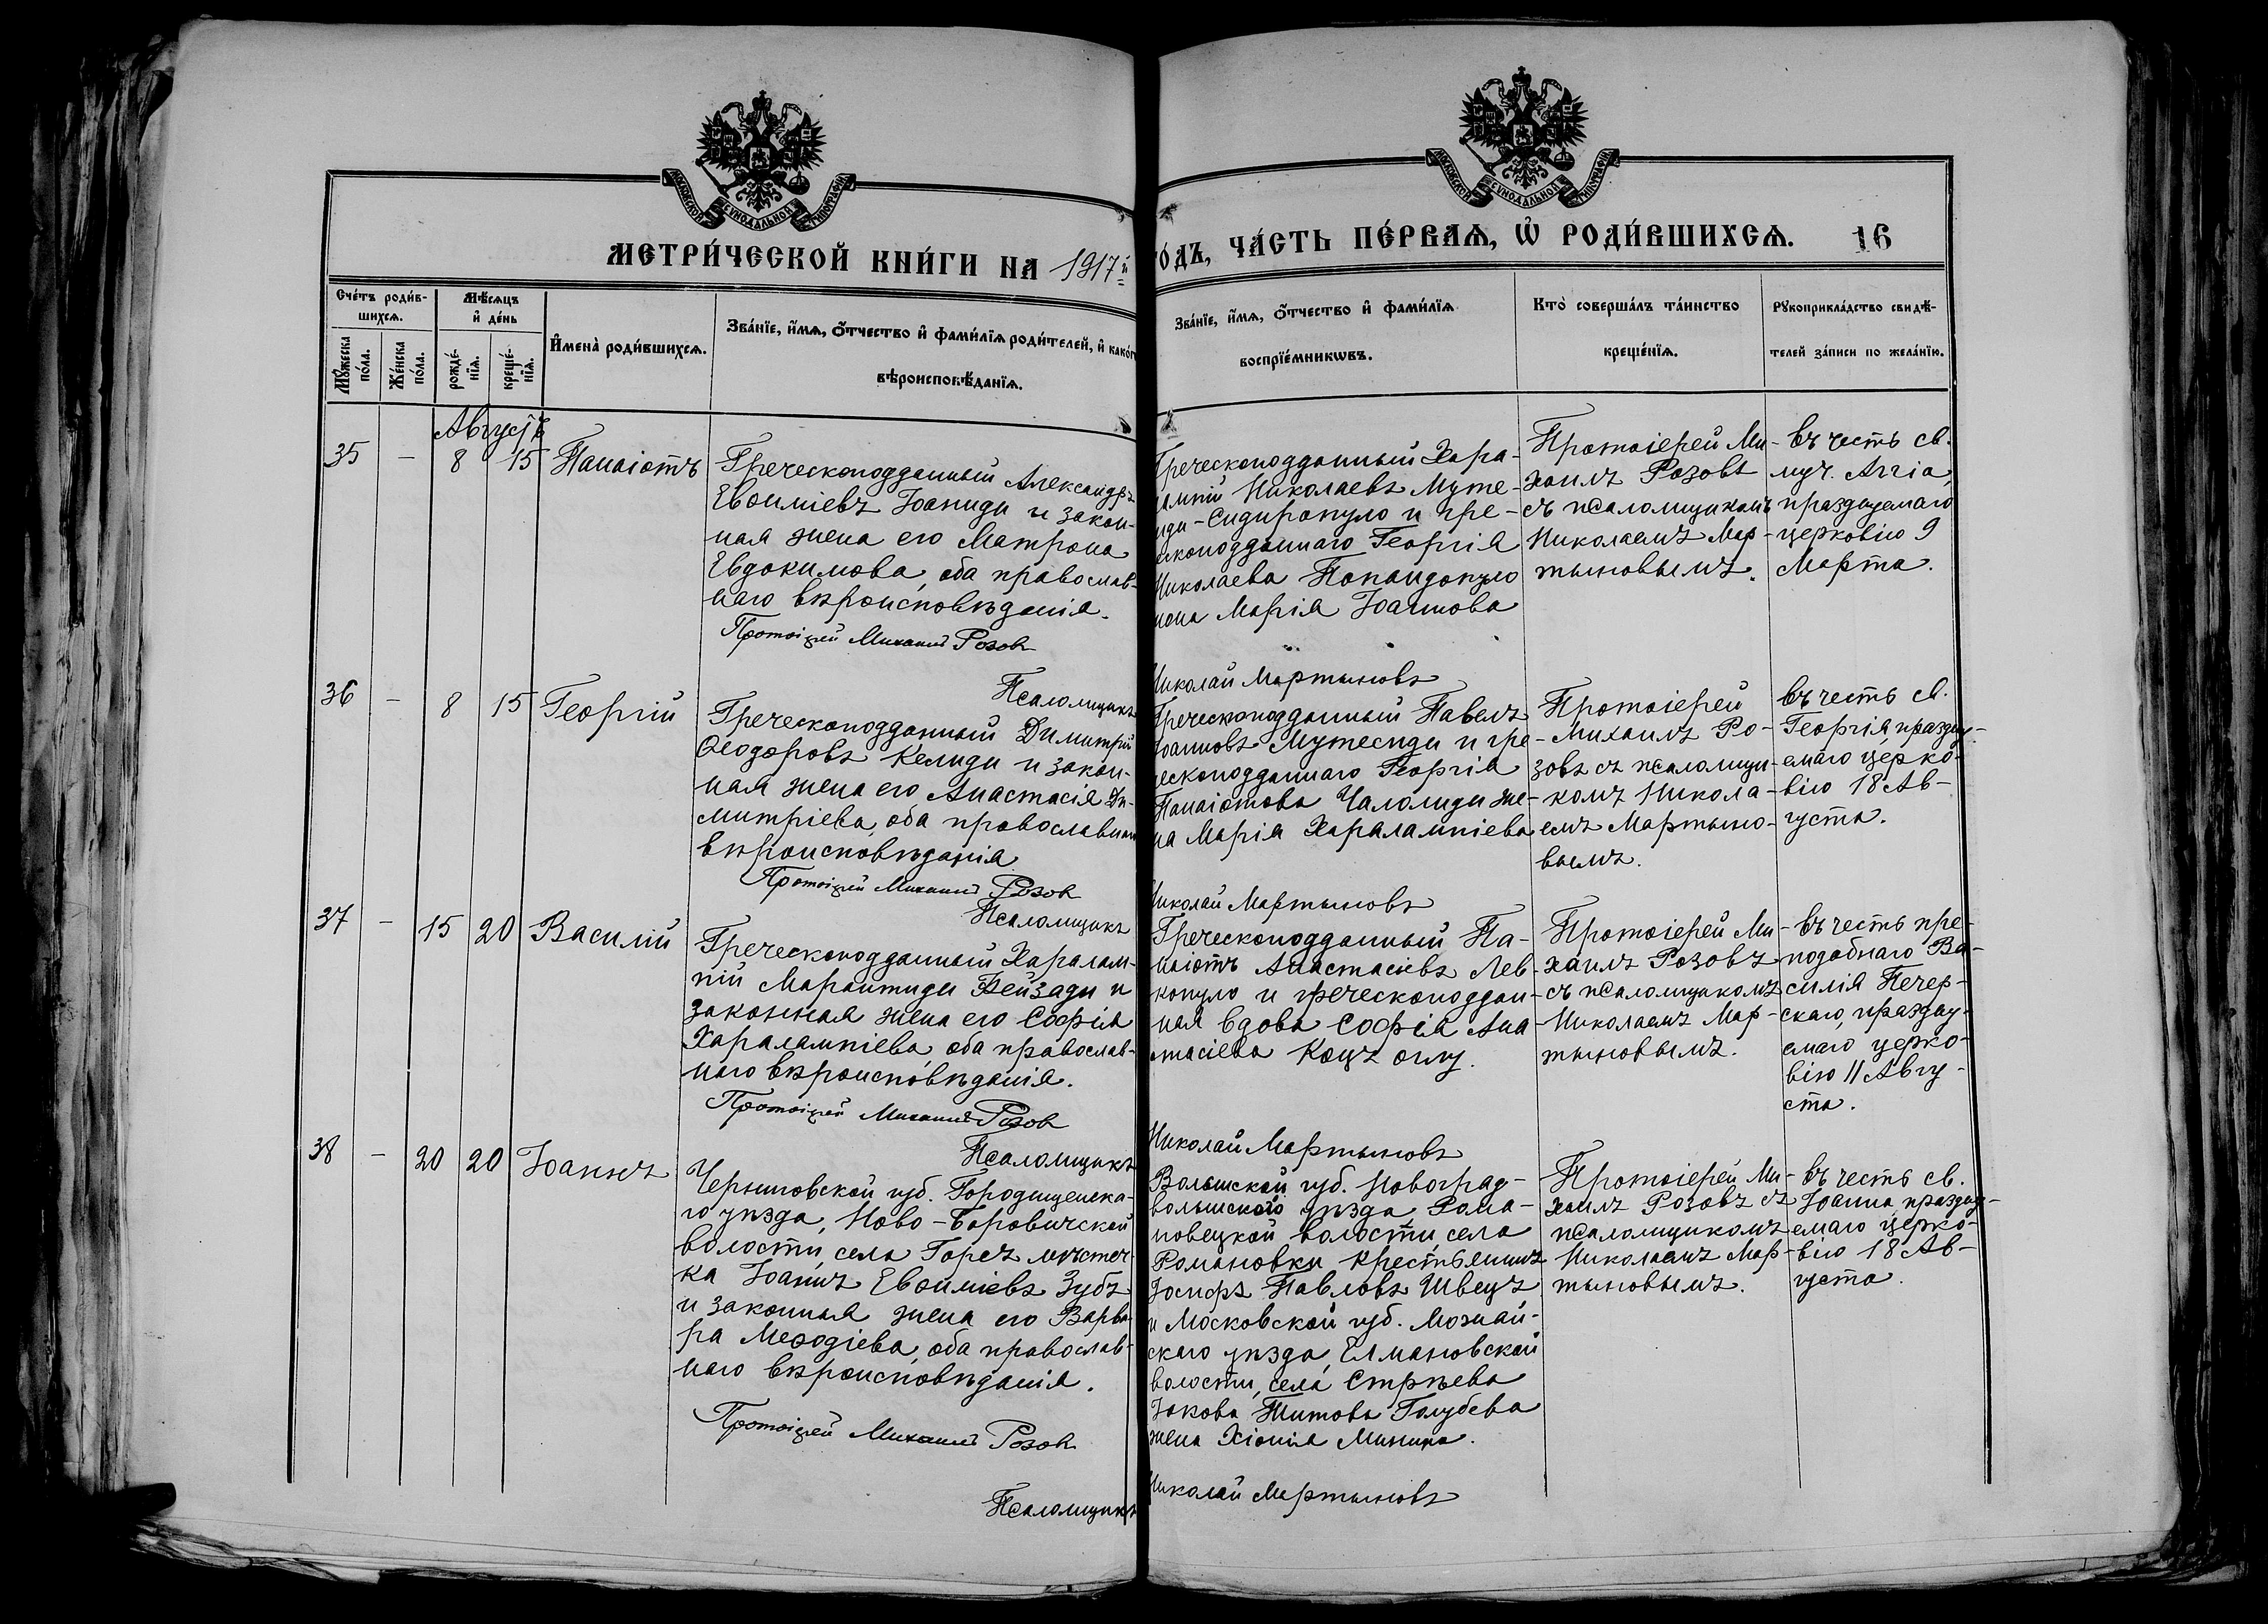 МОСКОВСКОЙ СѴНОДАЛЬНОЙ ТИПОГРАФІИ
МОСКОВСКОЙ СѴНОДАЛЬНОЙ ТИПОГРАФІИ
МЕТРИ́ЧЕСКОЙ КНИ́ГИ НА 1917й
ГО́ДЪ, ЧА́СТЬ ПЕ́РВАѦ, Ѡ҆ РОДИ́ВШИХСѦ. 16
Сче́тъ роди́в-
шихсѧ.
Мѣ́сѧцъ
и҆ де́нь
Му́жеска
по́ла.
Же́нска
по́ла.
рожде́-
нїѧ.
креще́-
нїѧ.
И҆мена̀ роди́вшихсѧ.
Зва́нїе, и҆́мѧ, ѻ҆́тчество и҆ фами́лїѧ роди́телей, и҆ како́г
вѣроисповѣ́данїѧ.
Зва́нїе, и҆́мѧ, ѻ҆́тчество и҆ фами́лїѧ
воспрїе́мникѡвъ.
Кто̀ соверша́лъ та́инство
креще́нїѧ.
Рꙋкоприкла́дство свидѣ́-
телей за́писи по жела́нїю.
Августъ
35 — 8 15 Панаіотъ
Греческоподданный Александръ
Евѳиміевъ Іоаниди и закон-
ная жена его Матрона
Евдокимова, оба православ-
наго вѣроисповѣданія.
Протоіерей Михаилъ Розовъ
Псаломщикъ
Греческоподданный Хара-
лампій Николаевъ Муте-
сиди-Сидиропуло и гре-
ческоподданнаго Георгія
Николаева Попандопуло
жена Марія Іоаннова
Николай Мартыновъ
Протоіерей Ми-
хаилъ Розовъ
съ псаломщикомъ
Николаемъ Мар-
тыновымъ.
въ честь св.
муч. Аггія,
празднуемаго
церковію 9
Марта.
36 — 8 15 Георгій
Греческоподданный Димитрій
Ѳеодоровъ Келиди и закон-
ная жена его Анастасія Ди-
митріева, оба православнаго
вѣроисповѣданія
Протоіерей Михаилъ Розовъ
Псаломщикъ
Греческоподданный Павелъ
Іоанновъ Мутесиди и гре-
ческоподданнаго Георгія
Панаіотова Чаломиди же-
на Марія Харалампіева
Николай Мартыновъ
Протоіерей
Михаилъ Ро-
зовъ съ псаломщи-
комъ Никола-
емъ Мартыно-
вымъ.
въ честь св.
Георгія, праздну-
емаго церко-
вію 18 Ав-
густа.
37 — 15 20 Василій
Греческоподданный Харалам-
пій Марантиди Бейзади и
законная жена его Софія
Харалампіева, оба православ-
наго вѣроисповѣданія.
Протоіерей Михаилъ Розовъ
Псаломщикъ
Греческоподданный Па-
наіотъ Анастасіевъ Лев-
копуло и греческоподдан-
ная вдова Софія Ана-
стасіева Коцъ оглу.
Николай Мартыновъ
Протоіерей Ми-
хаилъ Розовъ
съ псаломщикомъ
Николаемъ Мар-
тыновымъ.
въ честь пре-
подобнаго Ва-
силія Печер-
скаго, праздну-
емаго церко-
вію 11 Авгу-
ста.
38 — 20 20 Іоаннъ
Черниговской губ. Городищенска-
го уѣзда, Ново-Боровичской
волости, села Горехъ мѣстеч-
ка Іоаннъ Евѳиміевъ Зубъ
и законная жена его Варва-
ра Меѳодіева, оба православ-
наго вѣроисповѣданія.
Протоіерей Михаилъ Розовъ
Псаломщикъ
Волынской губ. Новоград-
волынскаго уѣзда Рома-
новецкой волости, села
Романовки крестьянинъ
Іосифъ Павловъ Швецъ
и Московской губ. Можай-
скаго уѣзда, Елмановской
волости, села Стрѣева
Іакова Титова Голубева
жена Хіонія Минина.
Николай Мартыновъ
Протоіерей Ми-
хаилъ Розовъ съ
псаломщикомъ
Николаемъ Мар-
тыновымъ.
въ честь св.
Іоанна, праздну-
емаго церко-
вію 18 Ав-
густа.